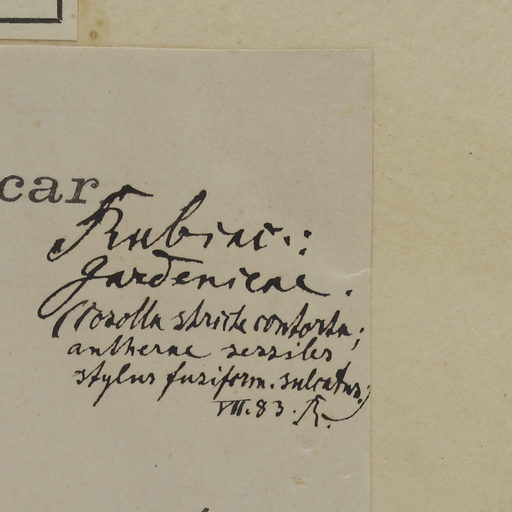 car
Rubiac.:
Gardenieae.
(Corolla stricte contorta;
antherae sessiles
stylus fusiform. sulcatus.)
VII. 83. R.